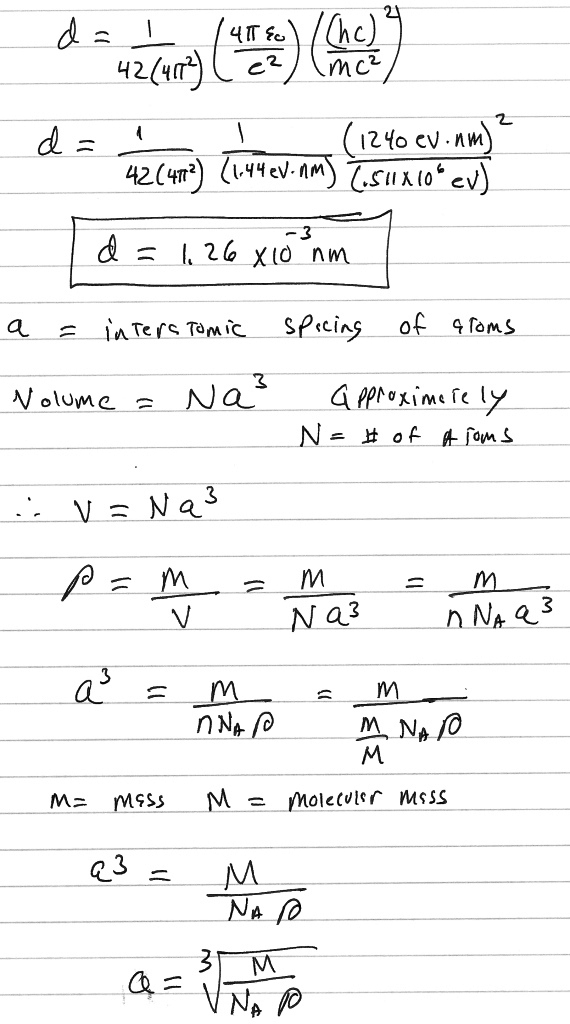 d = 1/(42(4π²)) (4πε₀/e²) ((hc)²/mc²)
d = 1/(42(4π²)) 1/(1.44 eV·nm) (1240 eV·nm)²/(.511×10⁶ eV)
d = 1.26 ×10⁻³ nm
a = interatomic spacing of atoms
Volume = Na³ approximately
N = # of Atoms
∴ V = Na³
ρ = m/V = m/(Na³) = m/(nN_A a³)
a³ = m/(nN_A ρ) = m/((m/M) N_A ρ)
m = mass M = molecular mass
a³ = M/(N_A ρ)
a = ∛(M/(N_A ρ))